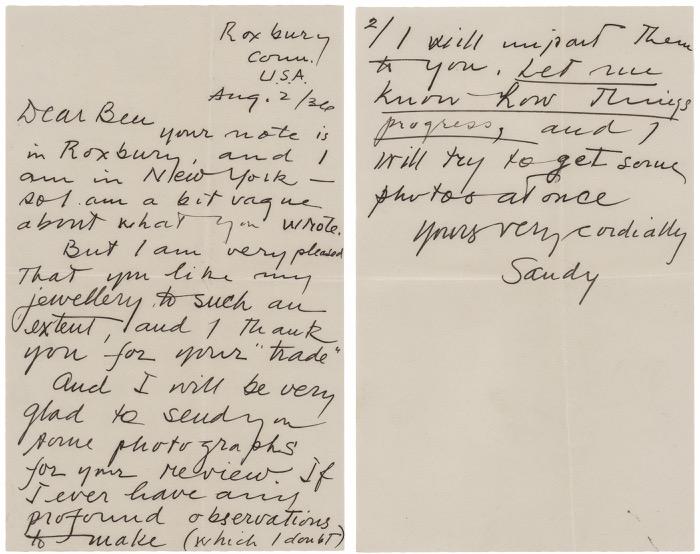 Roxbury
Conn.
U.S.A.
Aug. 2/36
Dear Ben
your note is
in Roxbury, and I
am in New York –
so I am a bit vague
about what you wrote.
But I am very pleased
that you like my
jewellery to such an
extent, and I thank
you for your "trade"
And I will be very
glad to send you
some photographs
for your review. If
I ever have any
profound observations
to make (which I doubt)
2/ I will impart them
to you. Let me
know how things
progress, and I
will try to get some
photos at once
Yours very cordially
Sandy